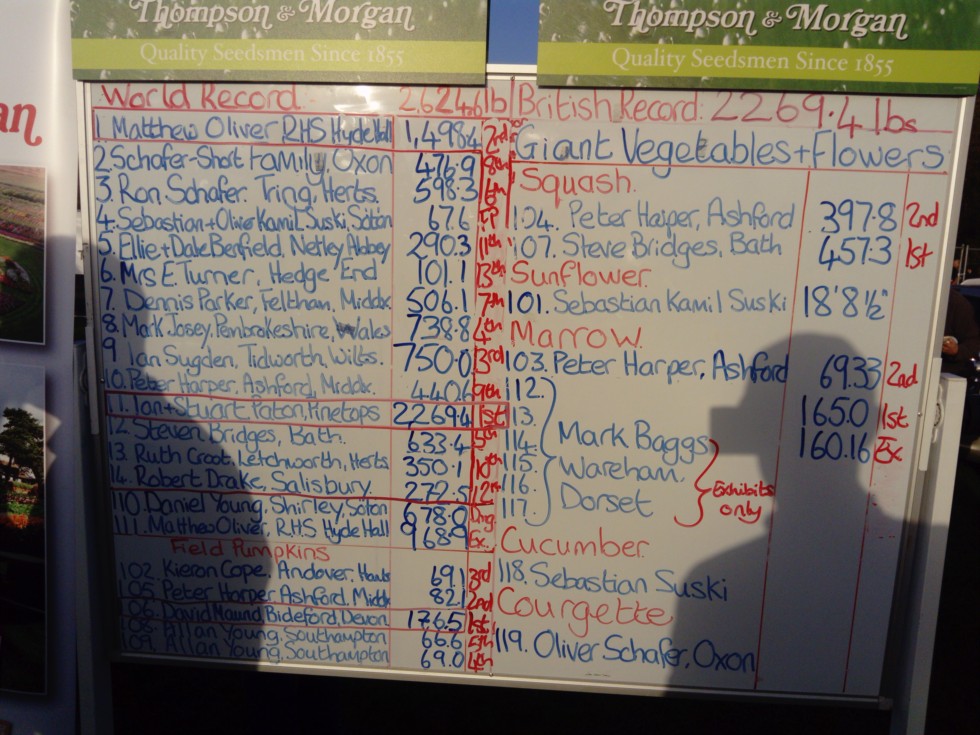 Thompson & Morgan
Quality Seedsmen Since 1855
Thompson & Morgan
Quality Seedsmen Since 1855
an
World Record 2,624.6 lb
1. Matthew Oliver RHS Hyde Hall 1,498.4 2nd
2. Schofer-Short Family, Oxon 476.9 8th
3. Ron Schofer. Tring, Herts. 598.3 6th
4. Sebastian + Oliver Kamil Suski, Soton 67.6
5. Ellie + Dale Benfield, Netley Abbey 290.3 11th
6. Mrs E. Turner, Hedge End 101.1 13th
7. Dennis Parker, Feltham, Middx. 506.1 7th
8. Mark Josey, Pembrokeshire, Wales 738.8 4th
9 Ian Sugden, Tidworth, Wilts. 750.0 3rd
10. Peter Harper, Ashford, Middx. 440.6 9th
11. Ian + Stuart Paton, Pinetops 2269.4 1st
12. Steven Bridges, Bath. 633.4 5th
13. Ruth Croot, Letchworth, Herts 350.1 10th
14. Robert Drake, Salisbury. 272.5 12th
110. Daniel Young, Shirley, Soton 678.0
111. Matthew Oliver, RHS Hyde Hall 968.9 Ex.
Field Pumpkins
102. Kieron Cope, Andover, Hants 69.1 3rd
105. Peter Harper, Ashford, Middx 82.1 2nd
106. David Maund, Bideford, Devon 176.5 1st
108. Allan Young, Southampton 66.6 5th
109. Allan Young, Southampton 69.0 4th
British Record: 2269.4 lbs
Giant Vegetables + Flowers
Squash.
104. Peter Harper, Ashford 397.8 2nd
107. Steve Bridges, Bath 457.3 1st
Sunflower.
101. Sebastian Kamil Suski 18'8½"
Marrow.
103. Peter Harper, Ashford 69.33 2nd
112. 165.0 1st
113.
114. Mark Baggs 160.16 Ex
115. Wareham,
116. Dorset
117.
Exhibits
only
Cucumber.
118. Sebastian Suski
Courgette
119. Oliver Schofer, Oxon